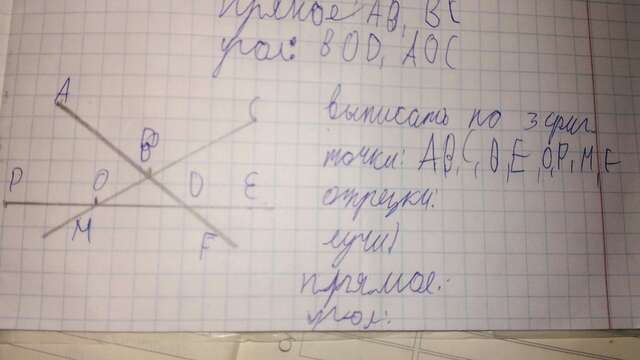 прямое: AB, BC
угол: BOD, AOC
A
C
B
P
O
D
E
M
F
выписать по 3 фиг.
точки: A,B,C,D,E,O,P,M,F
отрезки:
лучи)
прямое:
угол: